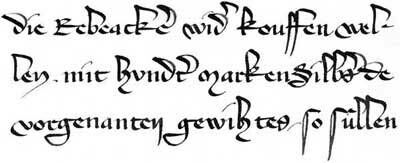 die Rebeacker wider kouffen wel-
len. mit hundert marken Silbers de
vorgenanten gewihtes, so süllen